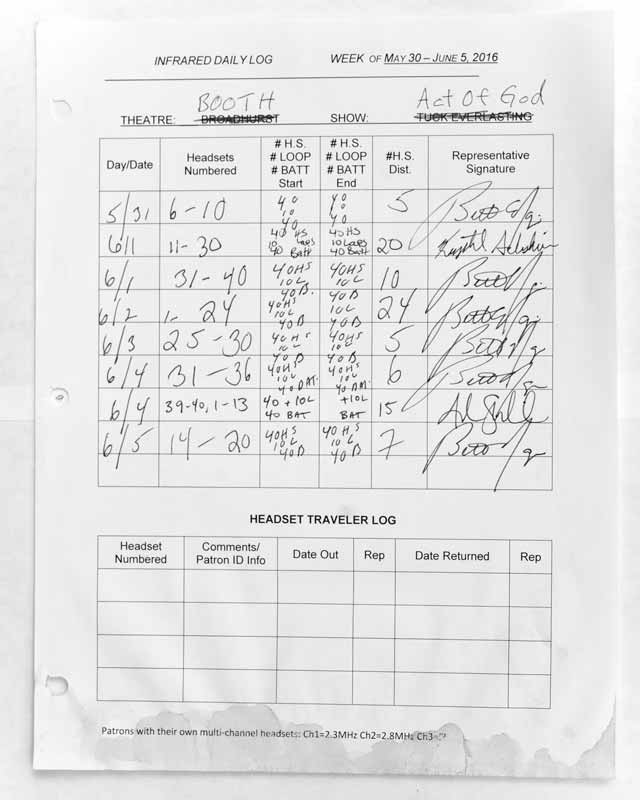 INFRARED DAILY LOG WEEK OF MAY 30 – JUNE 5, 2016
BOOTH Act Of God
THEATRE: BROADHURST SHOW: TUCK EVERLASTING
Day/Date Headsets Numbered # H.S. # LOOP # BATT Start # H.S. # LOOP # BATT End #H.S. Dist. Representative Signature
5/31 6-10 40 10 40 40 10 40 5
6/1 11-30 40 HS 10 Loops 40 Batt 40 HS 10 Loops 40 Batt 20
6/1 31-40 40HS 10L 40B. 40HS 10L 40B 10
6/2 1-24 40HS 10L 40B 40HS 10L 40B 24
6/3 25-30 40HS 10L 40B 40HS 10L 40B 5
6/4 31-36 40HS 10L 40BAT. 40HS 10L 40BAT. 6
6/4 39-40, 1-13 40 + 10L 40 BAT +10L BAT 15
6/5 14-20 40HS 10L 40B 40HS 10L 40B 7
HEADSET TRAVELER LOG
Headset Numbered Comments/ Patron ID Info Date Out Rep Date Returned Rep
Patrons with their own multi-channel headsets: Ch1=2.3MHz Ch2=2.8MHz Ch3=